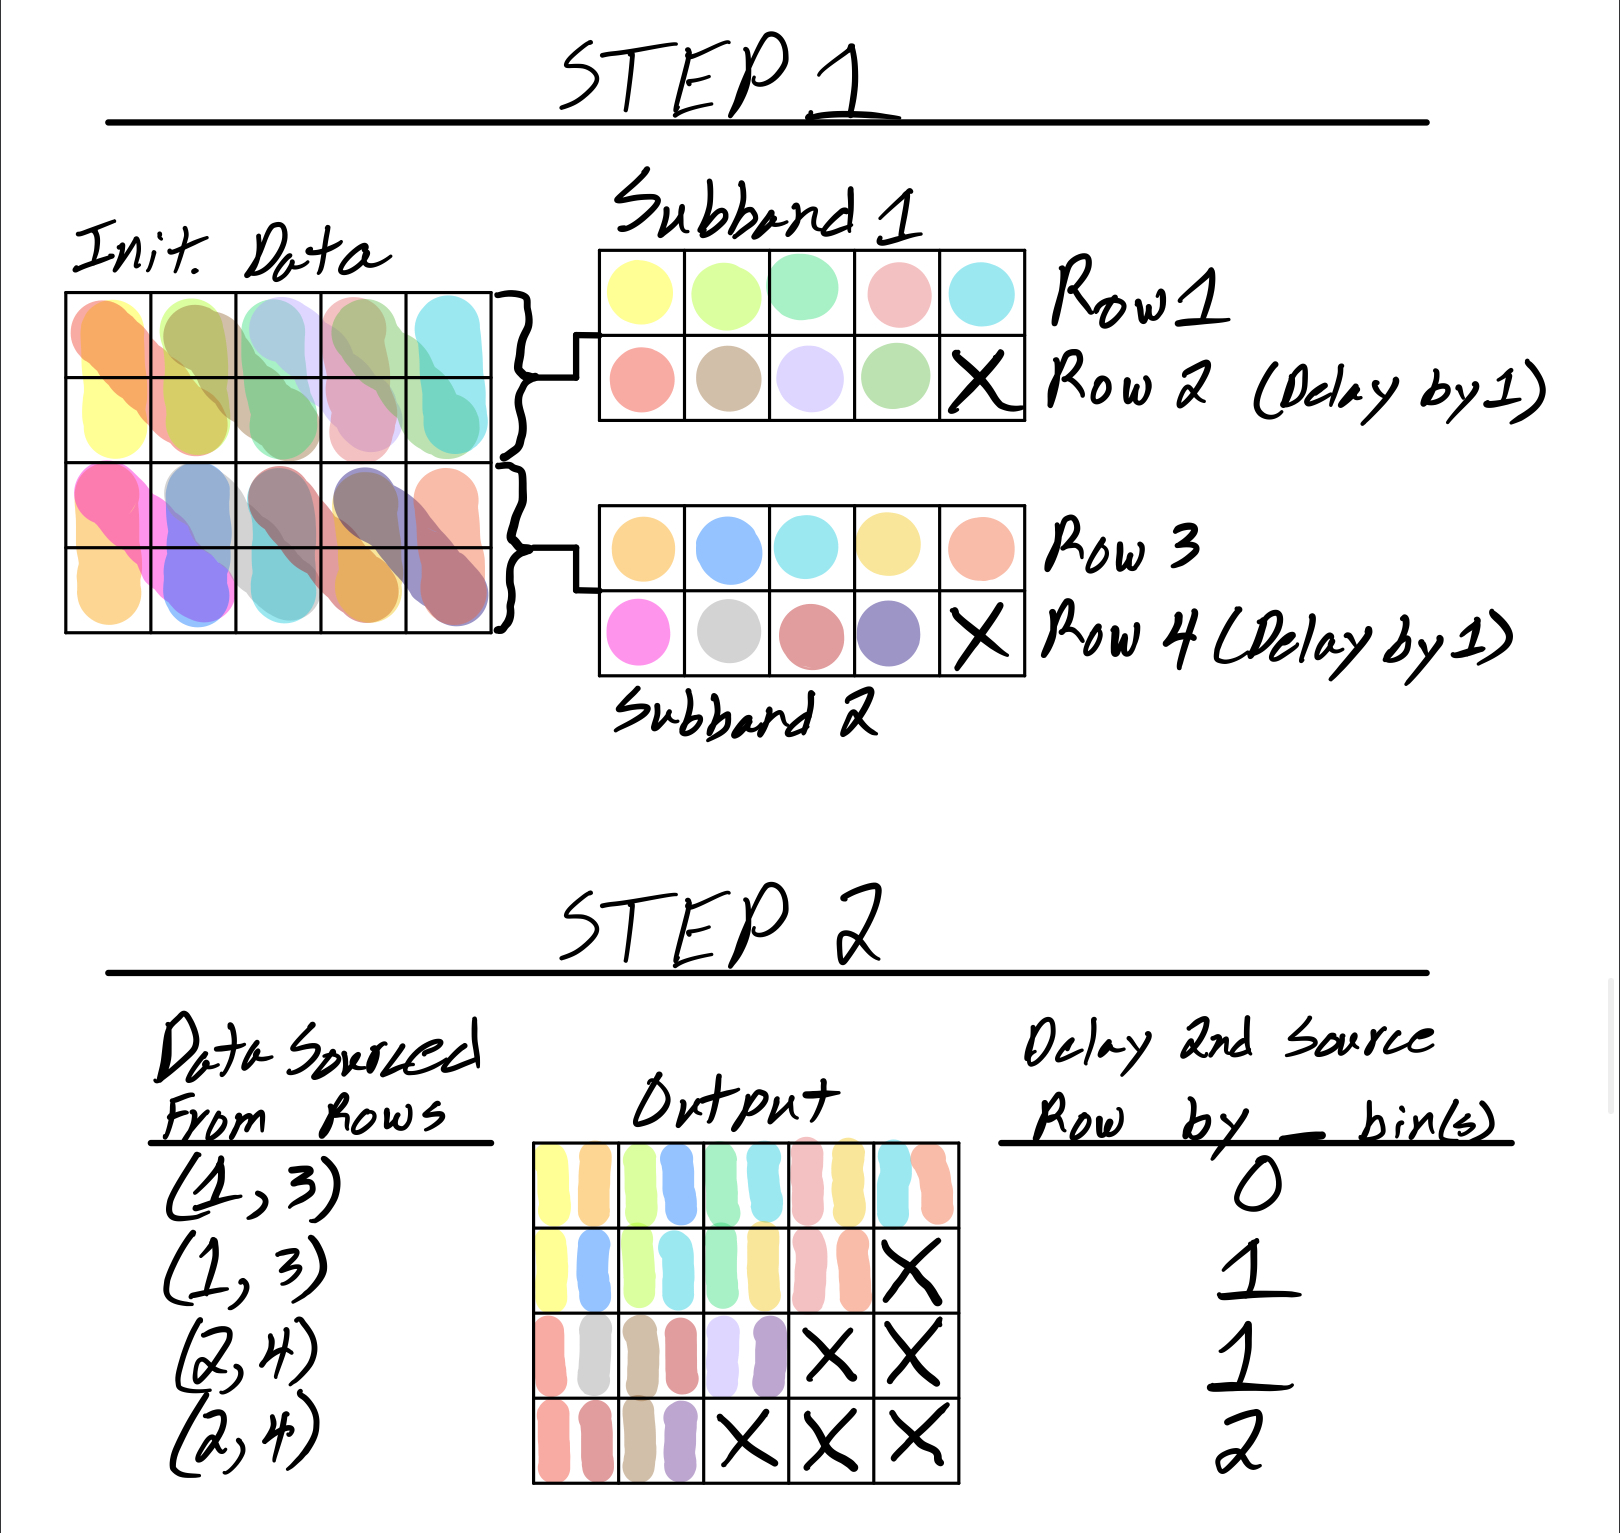 STEP 1
Init. Data
Subband 1
Row 1
X Row 2 (Delay by 1)
Row 3
X Row 4 (Delay by 1)
Subband 2
STEP 2
Data Sourced
From Rows
Output
Delay 2nd Source
Row by _ bin(s)
(1, 3) 0
(1, 3) X 1
(2, 4) X X 1
(2, 4) X X X 2